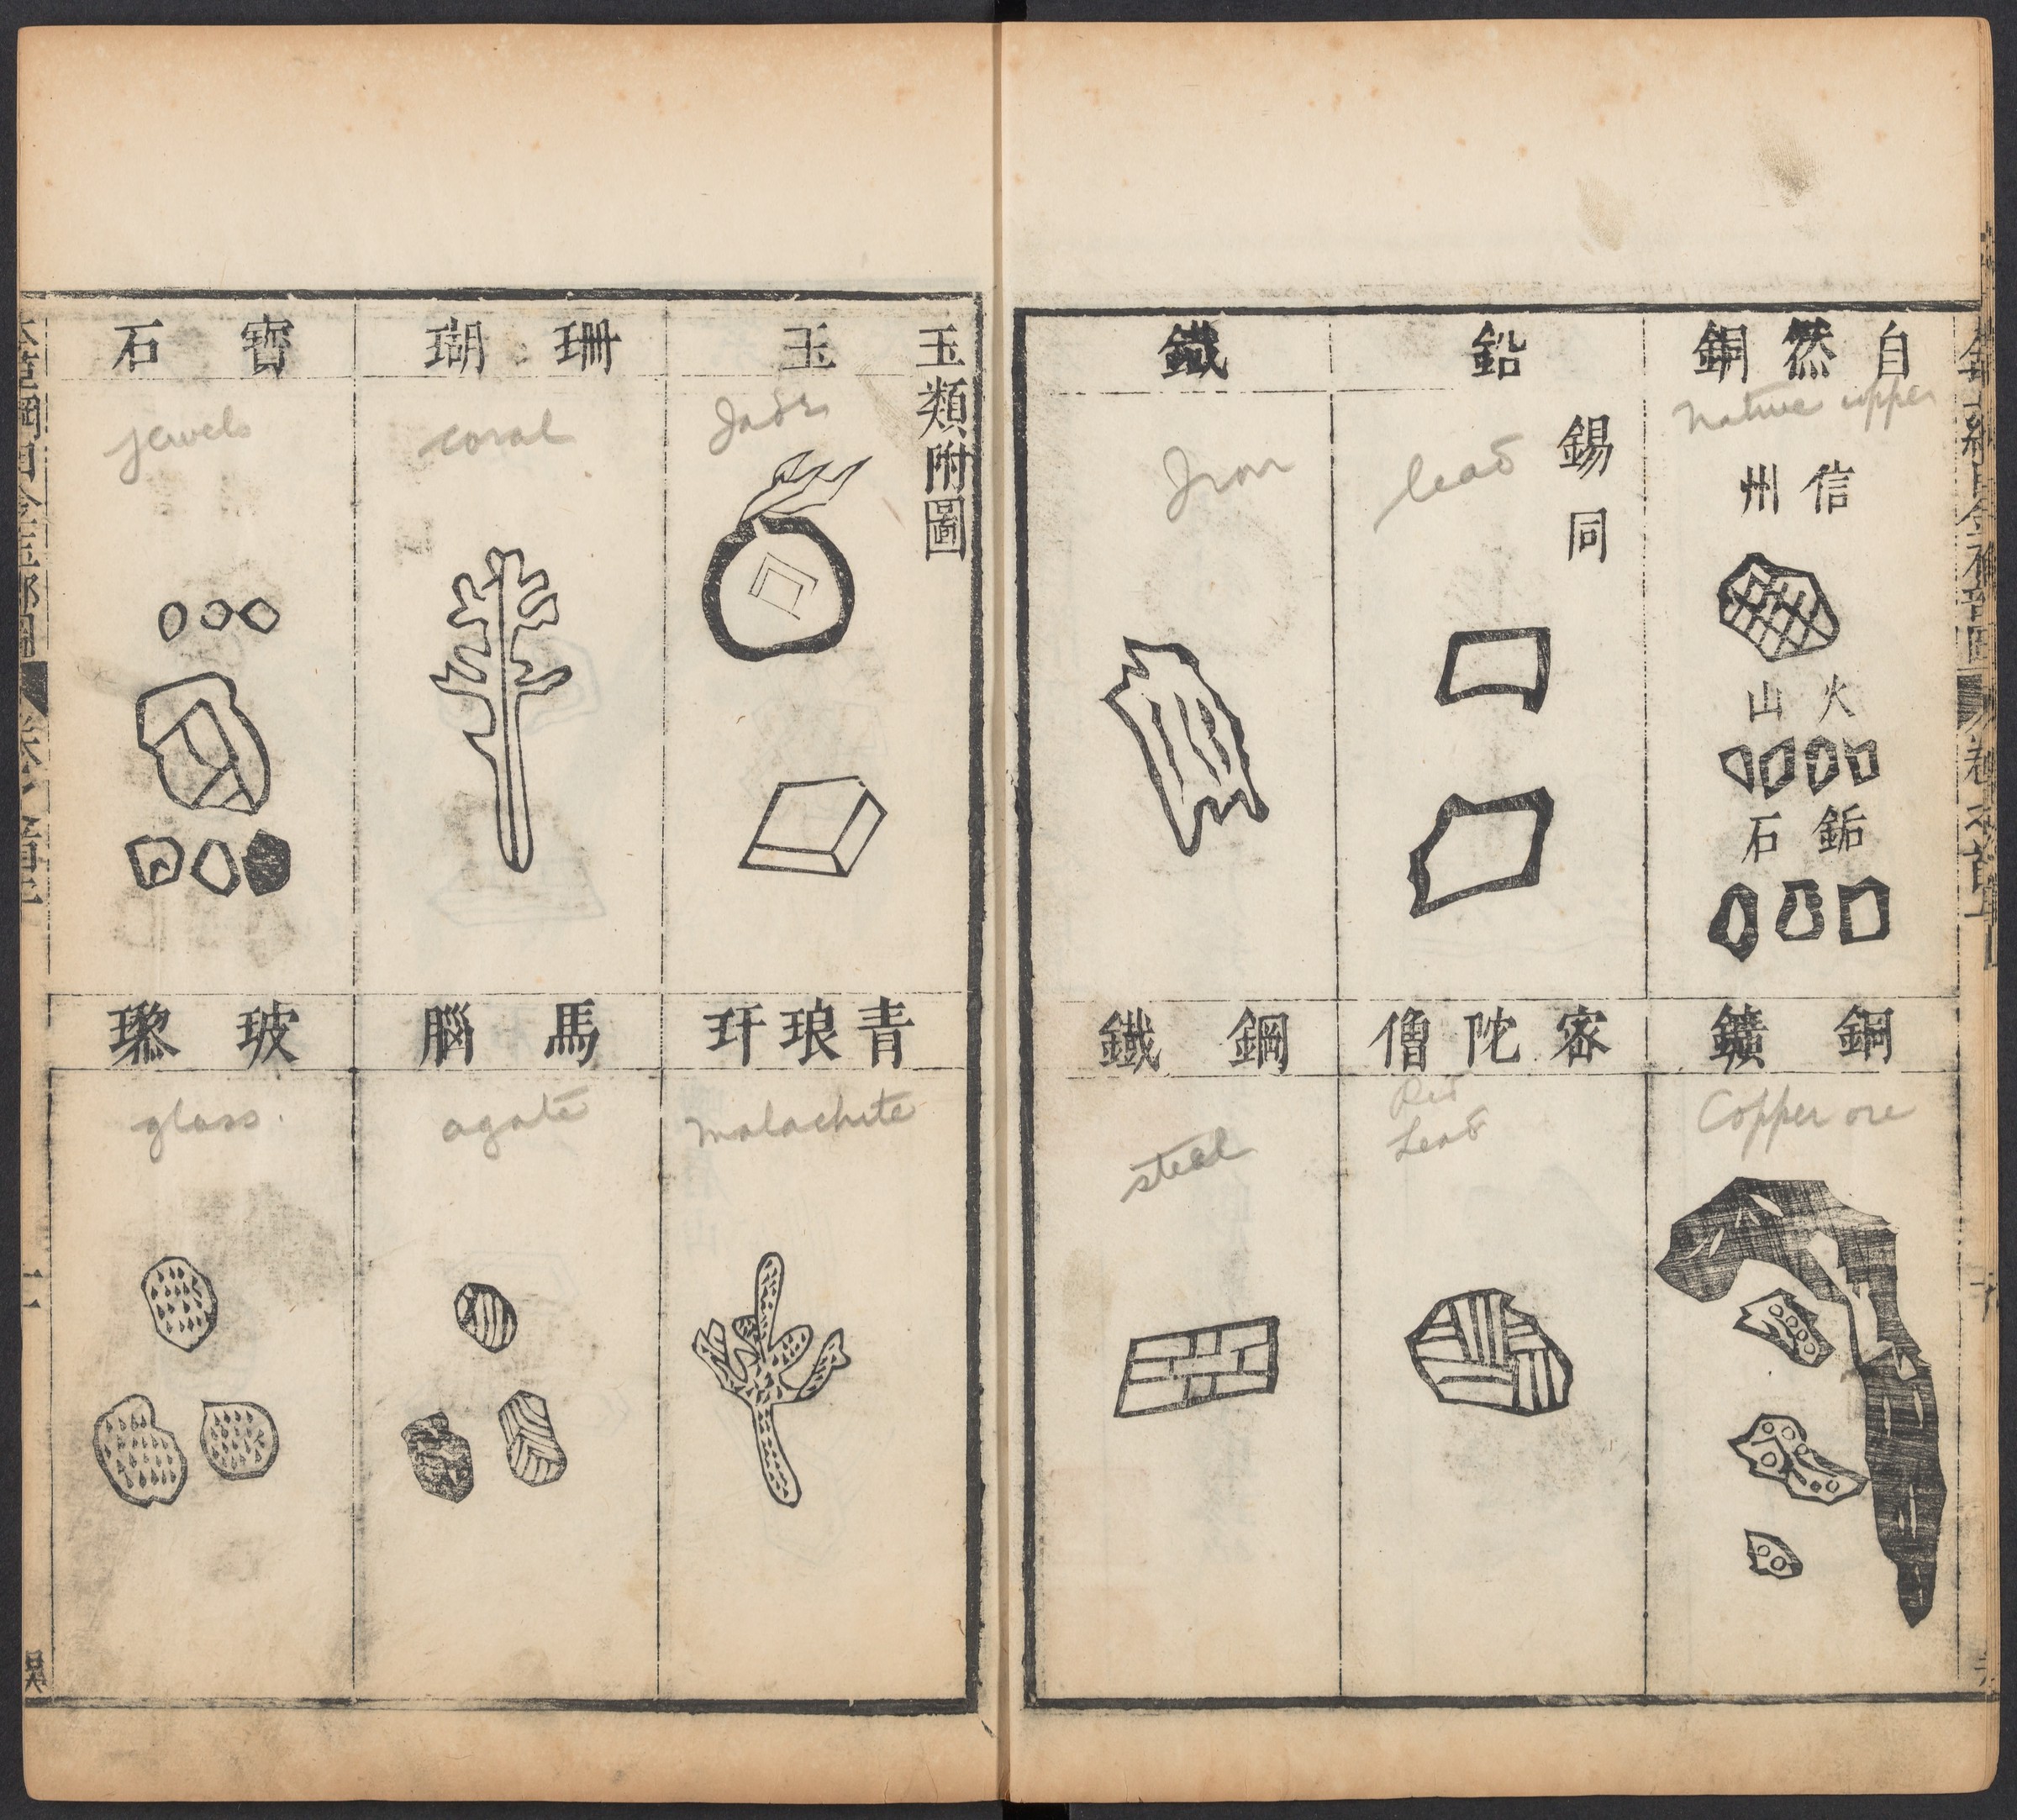 自然銅
Native copper
信州
火山
鉐石
鉛
錫同
lead
鐵
Iron
銅鑛
Copper ore
密陀僧
Red
Lead
鋼鐵
steel
玉類附圖
玉
Jade
珊瑚
coral
寶石
jewels
青琅玕
malachite
馬腦
agate
玻瓈
glass.